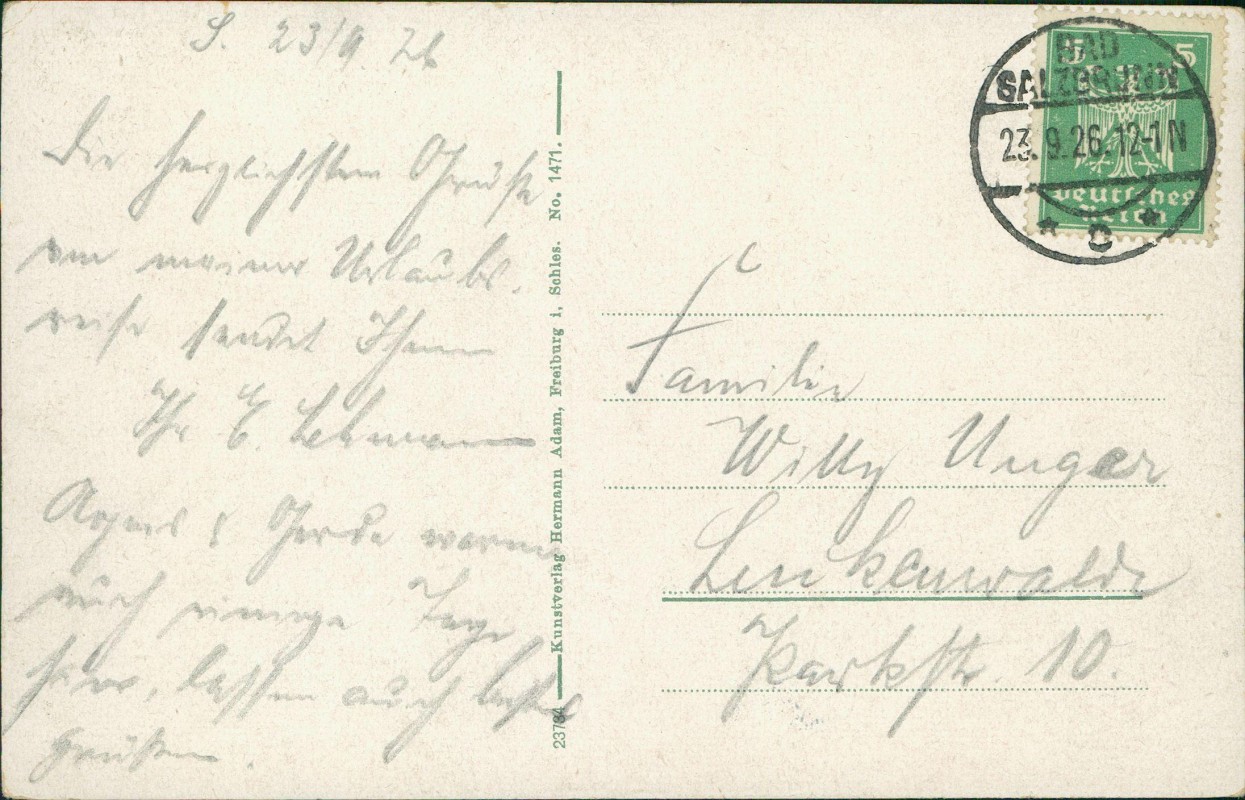 S. 23/9 26
Die herzlichsten Grüße
von meiner Urlaubs-
reise sendet Ihnen
Ihr E. Lehmann
Agnes & Gerda waren
auch einige Tage
hier, lassen auch bestens
grüßen.
Kunstverlag Hermann Adam, Freiburg i, Schles. No. 1471.
23784
5 5
Deutsches
Reich
BAD
SALZBRUNN
23.9.26.12-1N
* c *
Familie
Willy Unger
Luckenwalde
Parkstr. 10.